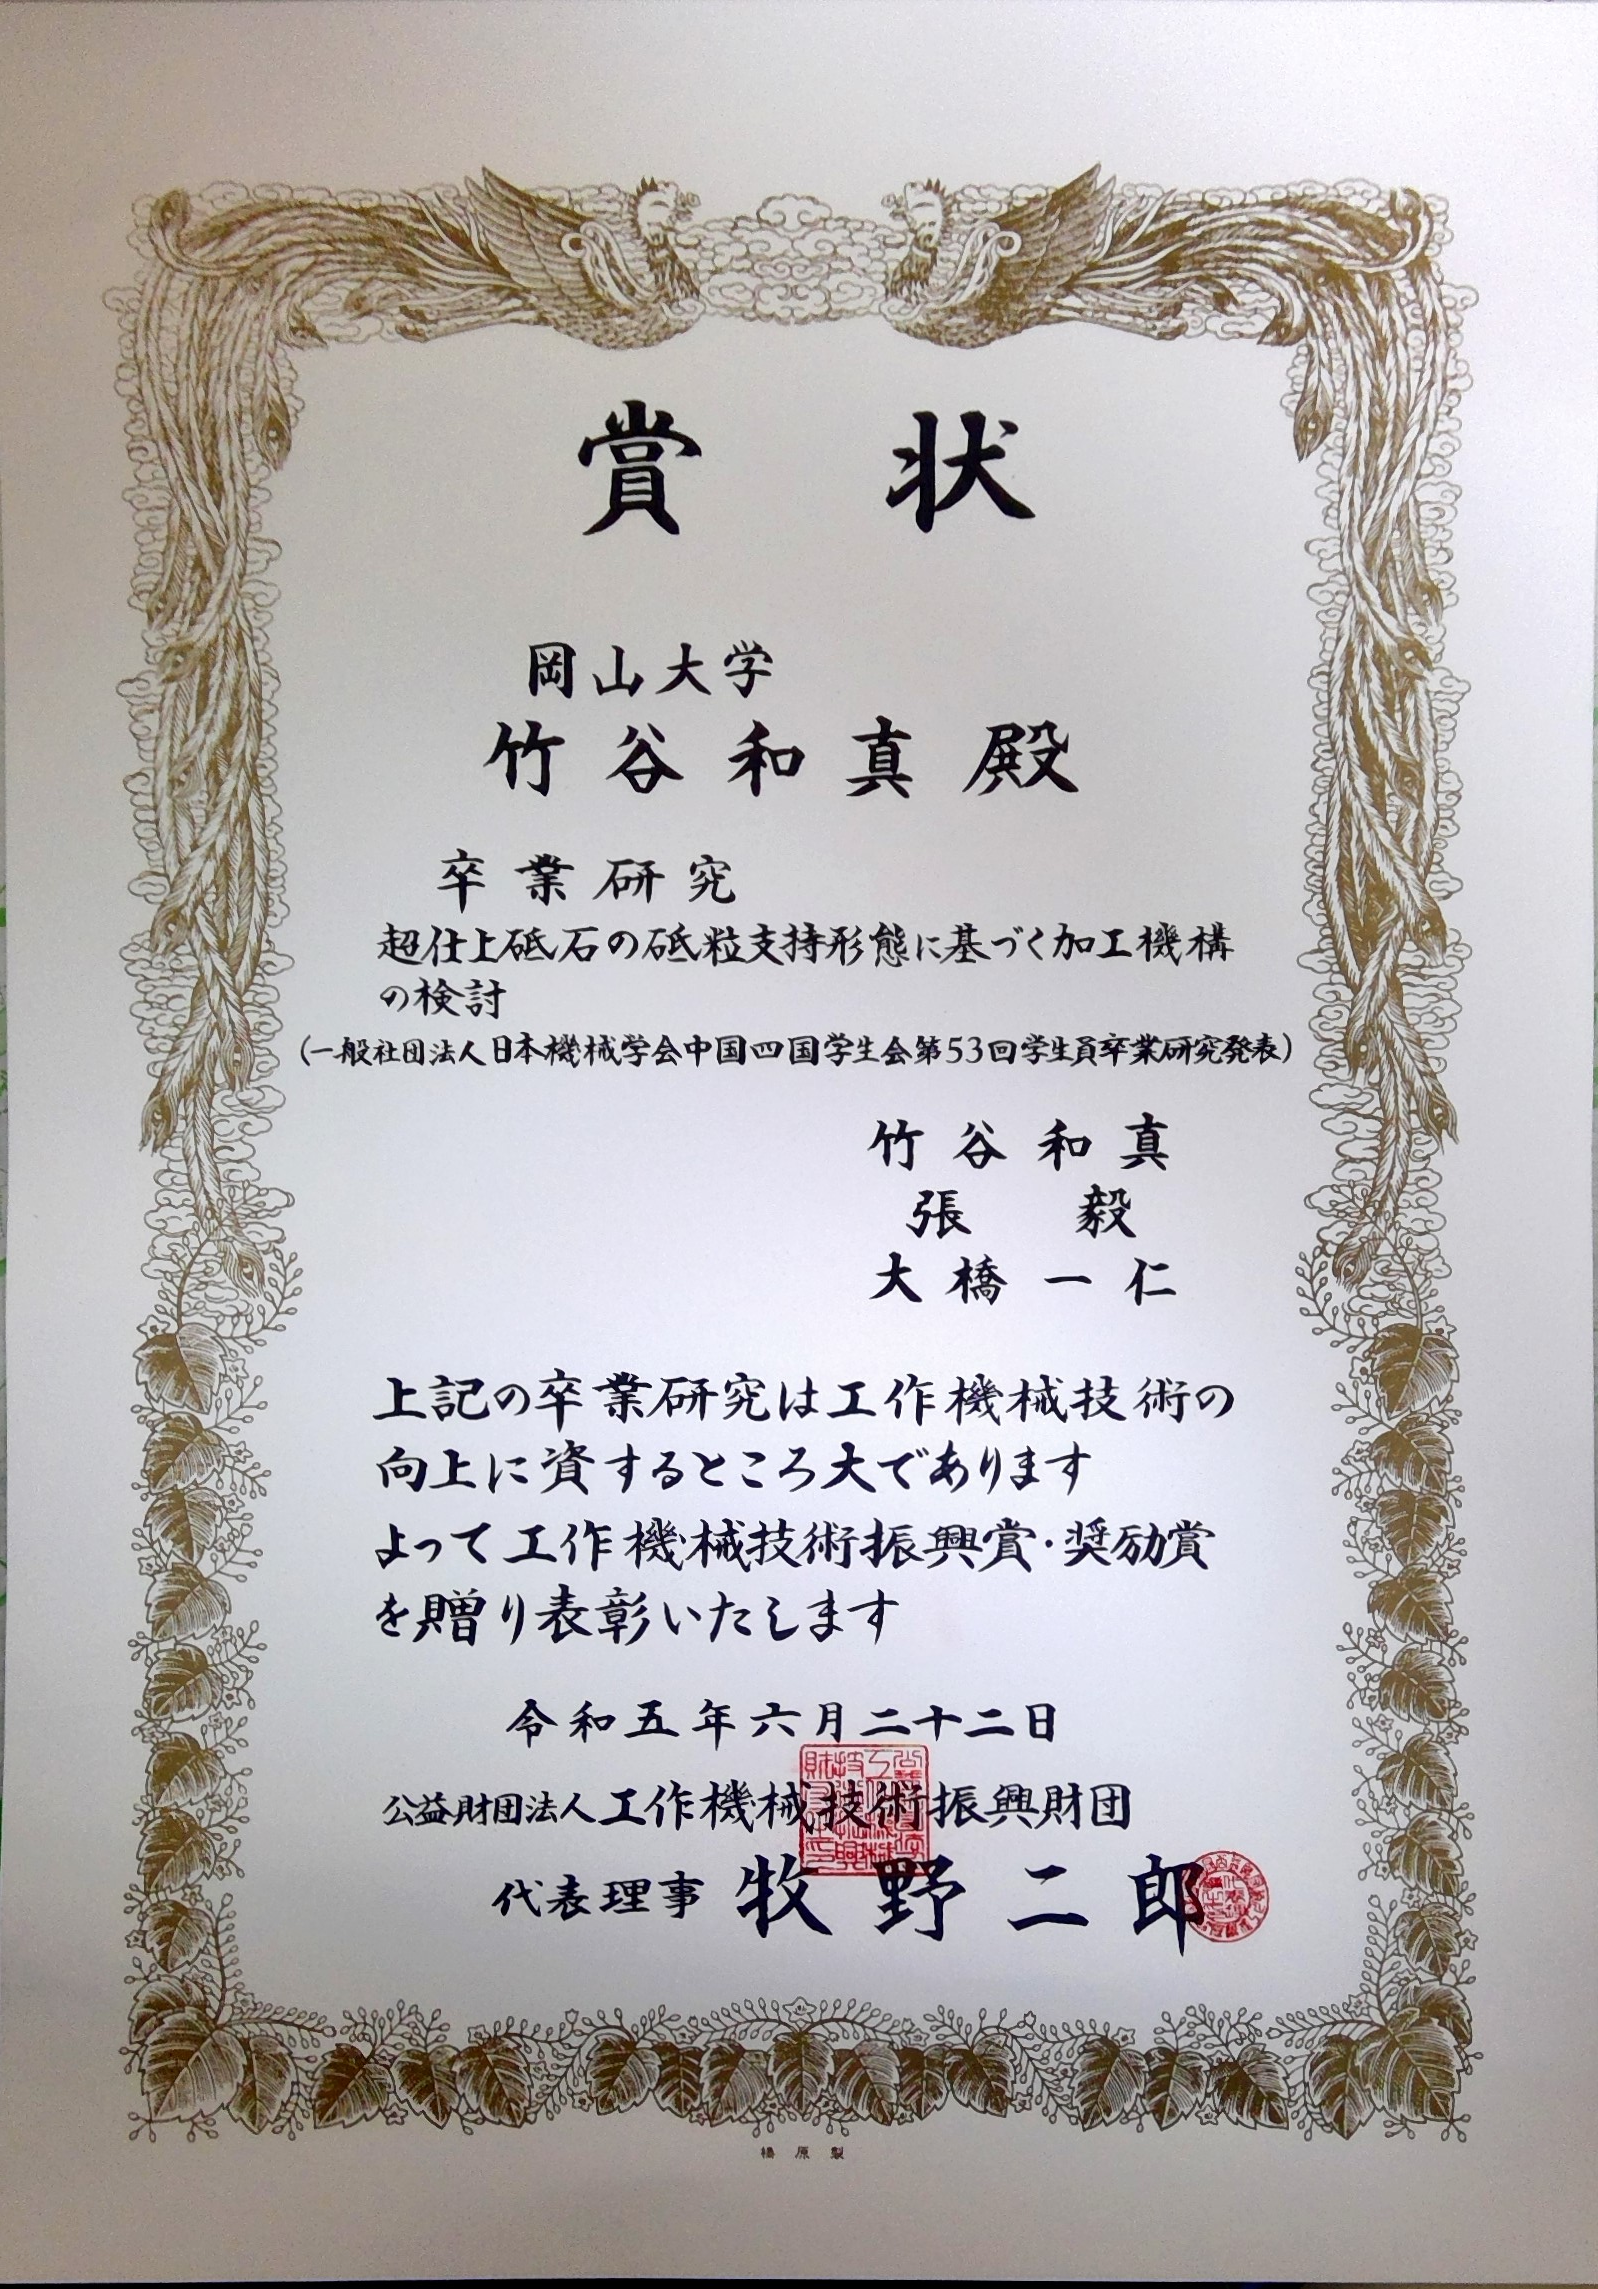 賞状
岡山大学
竹谷和真殿
卒業研究
超仕上砥石の砥粒支持形態に基づく加工機構
の検討
（一般社団法人日本機械学会中国四国学生会第53回学生員卒業研究発表）
竹谷和真
張毅
大橋一仁
上記の卒業研究は工作機械技術の
向上に資するところ大であります
よって工作機械技術振興賞・奨励賞
を贈り表彰いたします
令和五年六月二十二日
公益財団法人工作機械技術振興財団
代表理事 牧野二郎